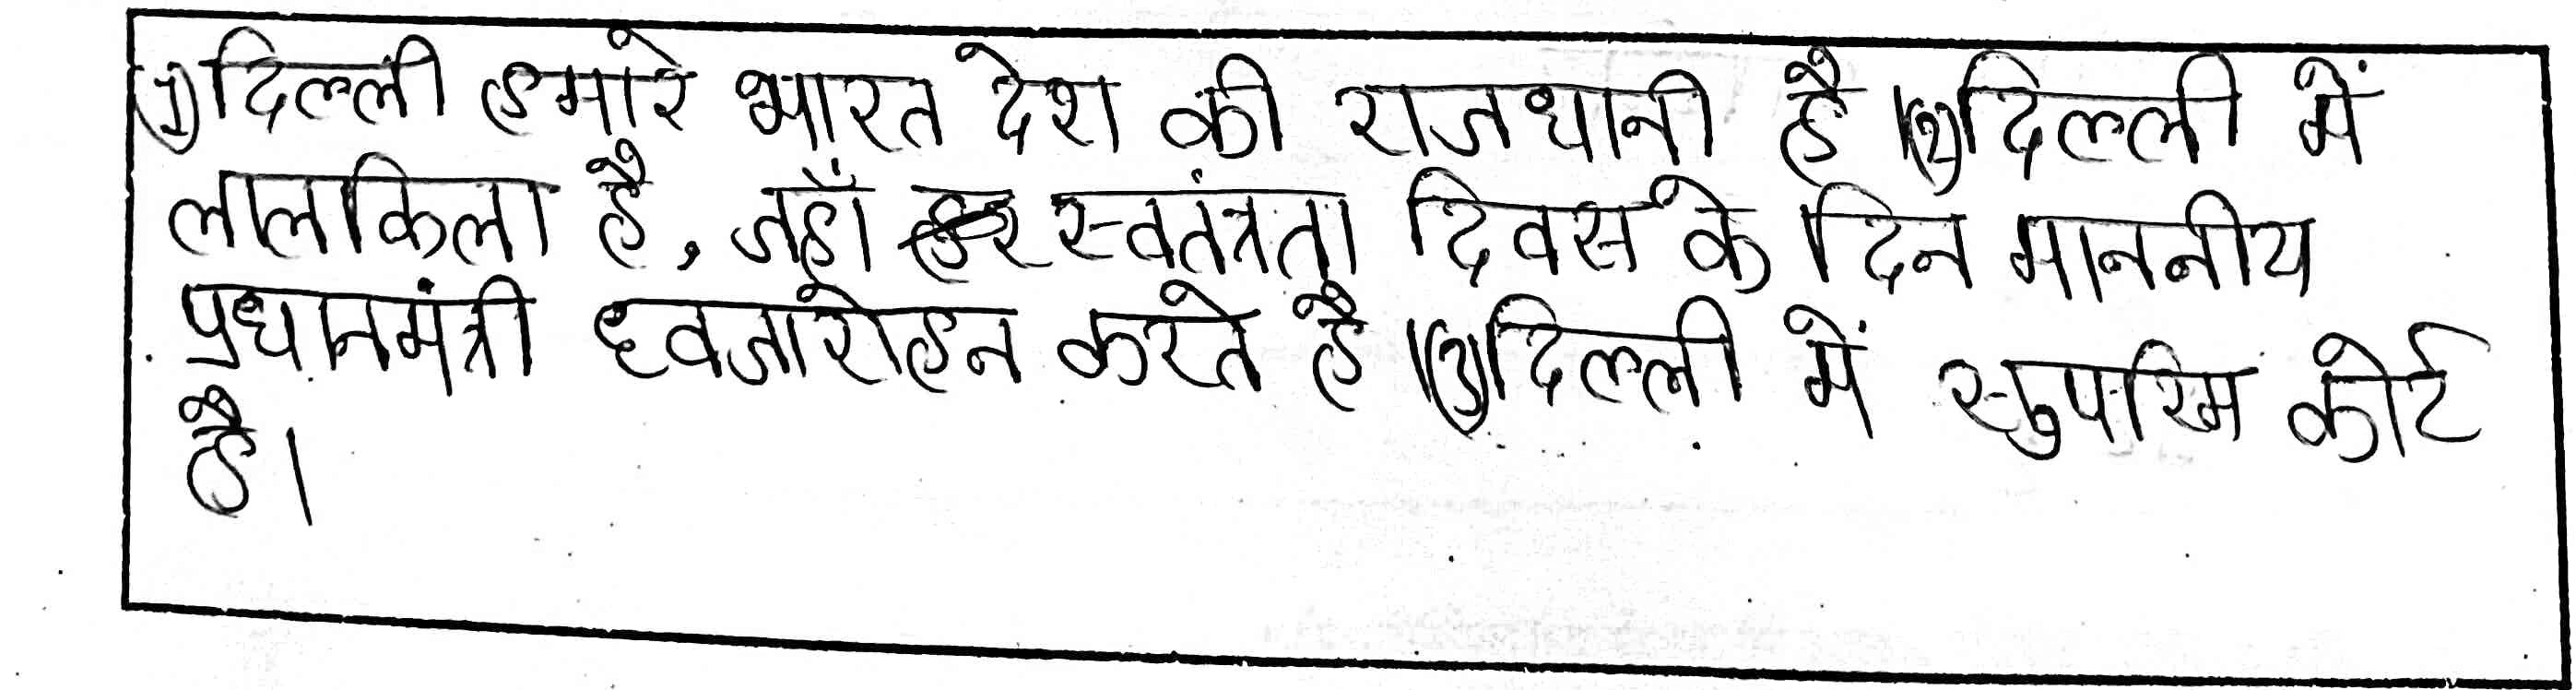 (1) दिल्ली हमारे भारत देश की राजधानी है।(2) दिल्ली में
लालकिला है, जहाँ स्वतंत्रता दिवस के दिन माननीय
प्रधानमंत्री ध्वजारोहन करते है।(3) दिल्ली में सुपरिम कोर्ट
है।